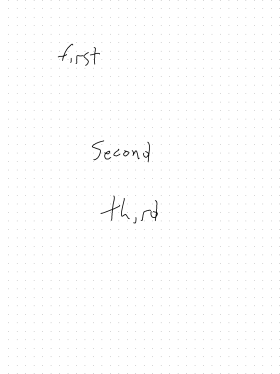 first
Second
third